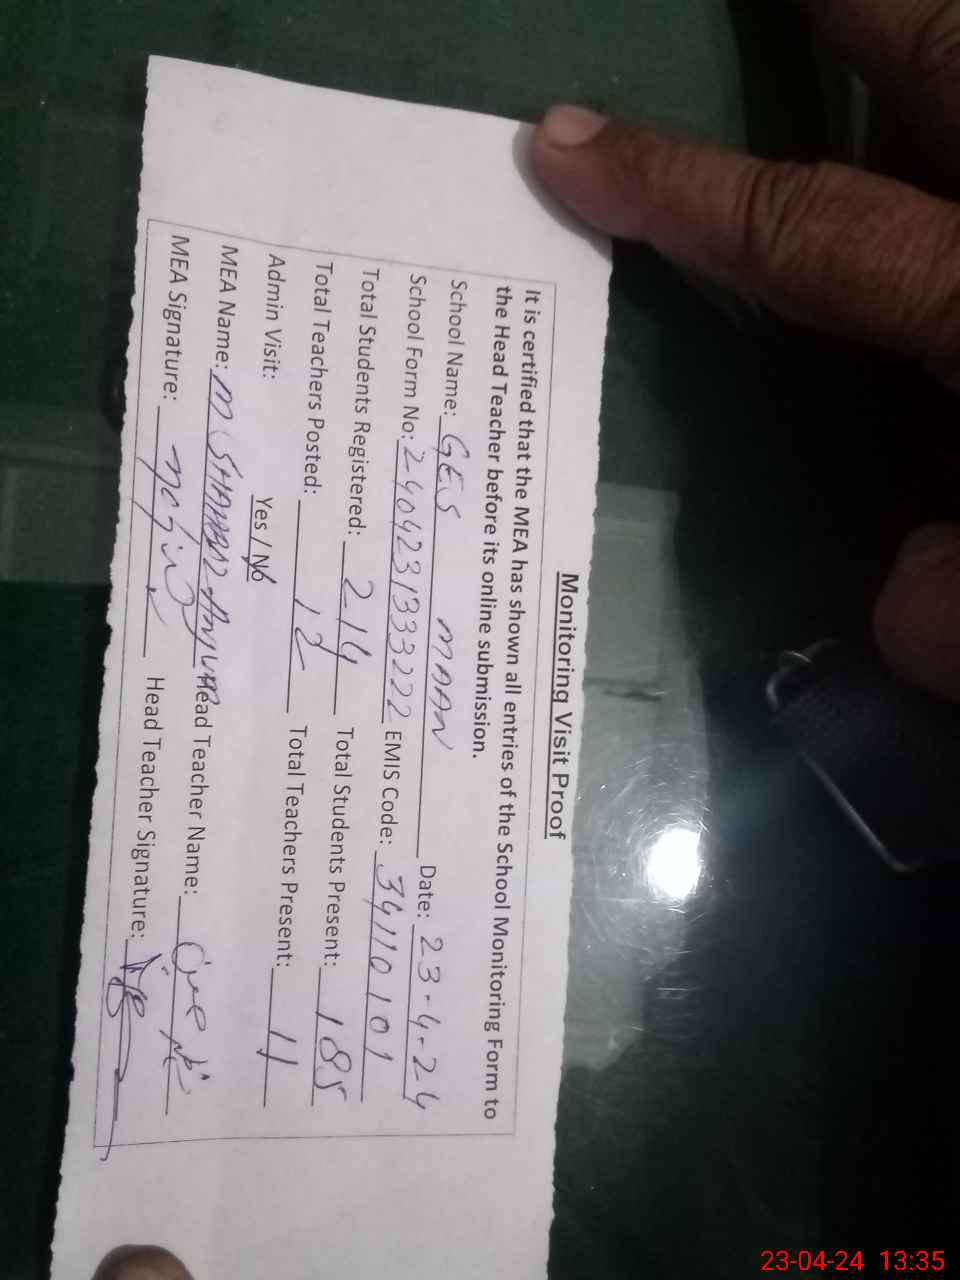 Monitoring Visit Proof
It is certified that the MEA has shown all entries of the School Monitoring Form to
the Head Teacher before its online submission.
School Name: GES MAAN Date: 23-4-24
School Form No: 2404231333222 EMIS Code: 34110101
Total Students Registered: 214 Total Students Present: 185
Total Teachers Posted: 12 Total Teachers Present: 11
Admin Visit: Yes / No
MEA Name: M SHAHBAZ ANJUM Head Teacher Name:
MEA Signature: Head Teacher Signature:
23-04-24 13:35